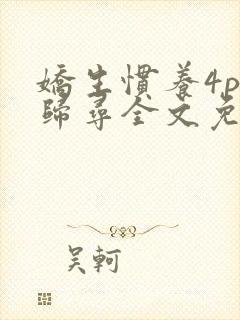 嬌生慣養4p
歸尋全文免
吴軻